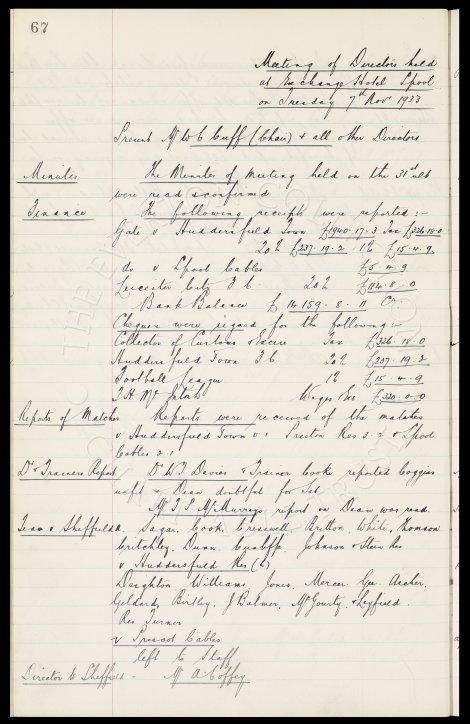 67
Meeting of Directors held
at Exchange Hotel Lpool
on Tuesday 7th Novr 1933
Present Mr W C Cuff (Chair) & all other Directors
Minutes The Minutes of Meeting held on the 31st ult
were read & confirmed
Finance The following receipts were reported :-
Gate v Huddersfield Town £1940.17.3 Tax £326.18.0
20% £237.19.2 1% £15.4.9
do v Lpool Cables £5.4.9
Leicester City F.C. 20% £114.8.0
Bank Balance £14,159.8.11 Cr.
Cheques were signed for the following :-
Collector of Customs & Excise Tax £326.18.0
Huddersfield Town F.C 20% £237.19.2
Football League 1% £15.4.9
T.H. McIntosh Wages &c £320.0.0
Reports of Matches Reports were received of the matches
v Huddersfield Town 0:1 Preston Res 3:2 & Lpool
Cables 2:1
Dr & Trainers Report Dr W.J. Davies & Trainer Cooke reported Coggins
unfit & Dean doubtful for Sat
Mr T.P. McMurrays report on Dean was read.
Team v Sheffield U. Sagar. Cook. Cresswell Britton White. Thomson
Critchley. Dunn. Cunliffe. Johnson & Stein Res
v Huddersfield Res (h)
Deighton Williams. Jones. Mercer. Gee. Archer.
Geldard. Birtley. J Balmer. McGourty. & Leyfield.
Res Turner
v Prescot Cables
left to Staff
Director to Sheffield - Mr A Coffey